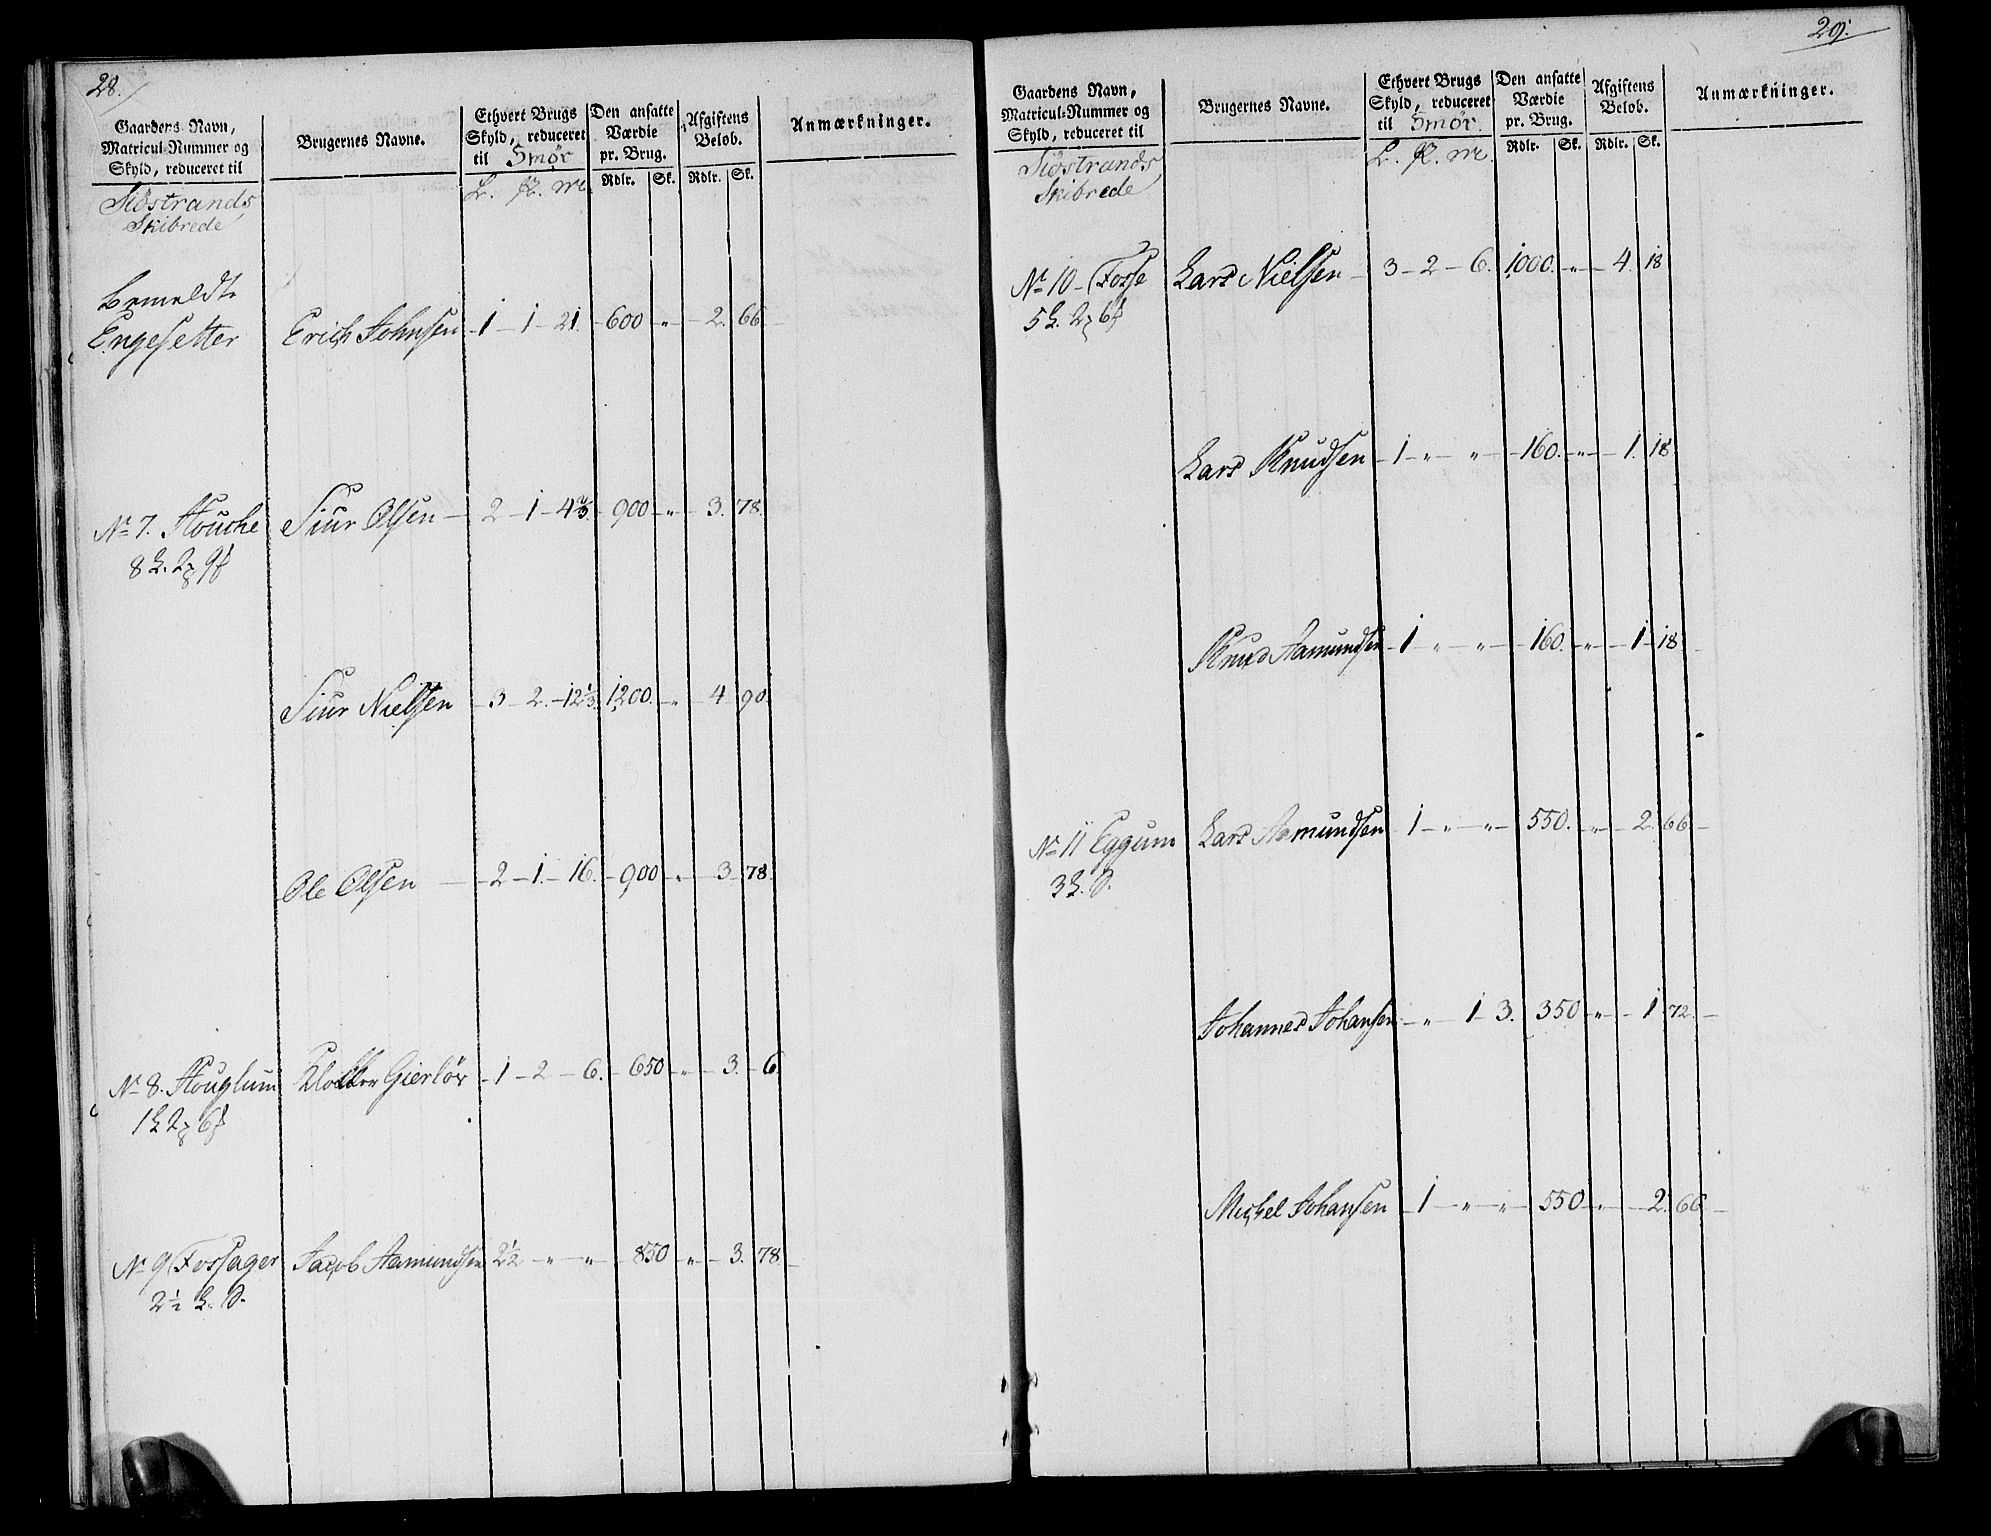 28.
Gaardens Navn, Matricul-Nummer og Skyld, reduceret til
Brugernes Navne.
Ethvert Brugs Skyld, reduceret til Smør
Den ansatte Værdie pr. Brug.
Afgiftens Belob.
Anmærkninger.
L. P. M. Rdlr. Sk. Rdlr. Sk.
Siöstrands
Skibrede
Bemeldte
Engesetter Erich Johnsen 1 - 1 - 21. 600 " 2. 66
No 7. Houche Siur Olsen 2 - 1 - 4 2/3. 900 " 3. 78.
8 L. 2
Siur Nielsen 3 - 2. - 12 1/3. 1200. " 4 90.
Ole Olsen 2 - 1. - 16. 900 " 3. 78.
No 8. Houglum Gierlöv 1 - 2 - 6. 650 " 3. 6
1 L 2
No 9 Fossager Jacob Aamundsen 2 1/2 " " 850 " 3. 78.
2 1/2 L.
29.
Gaardens Navn, Matricul-Nummer og Skyld, reduceret til
Brugernes Navne.
Ethvert Brugs Skyld, reduceret til Smør.
Den ansatte Værdie pr. Brug.
Afgiftens Belob.
Anmærkninger.
L. P. M. Rdlr. Sk. Rdlr. Sk.
Siöstrands
Skibrede
No 10 - Fosse Lars Nielsen 3 - 2 - 6. 1000. " 4. 18
5 L. 2
Lars Knudsen 1 " " 160. " 1. 18
Knud Aamundsen 1 " " 160. " 1 - 18
No 11 Eggum Lars Aamundsen 1 " " 550. " 2. 66
3 L.
Johannes Johansen " 1 3. 350 " 1 72.
Michel Johansen 1 " " 550 " 2. 66